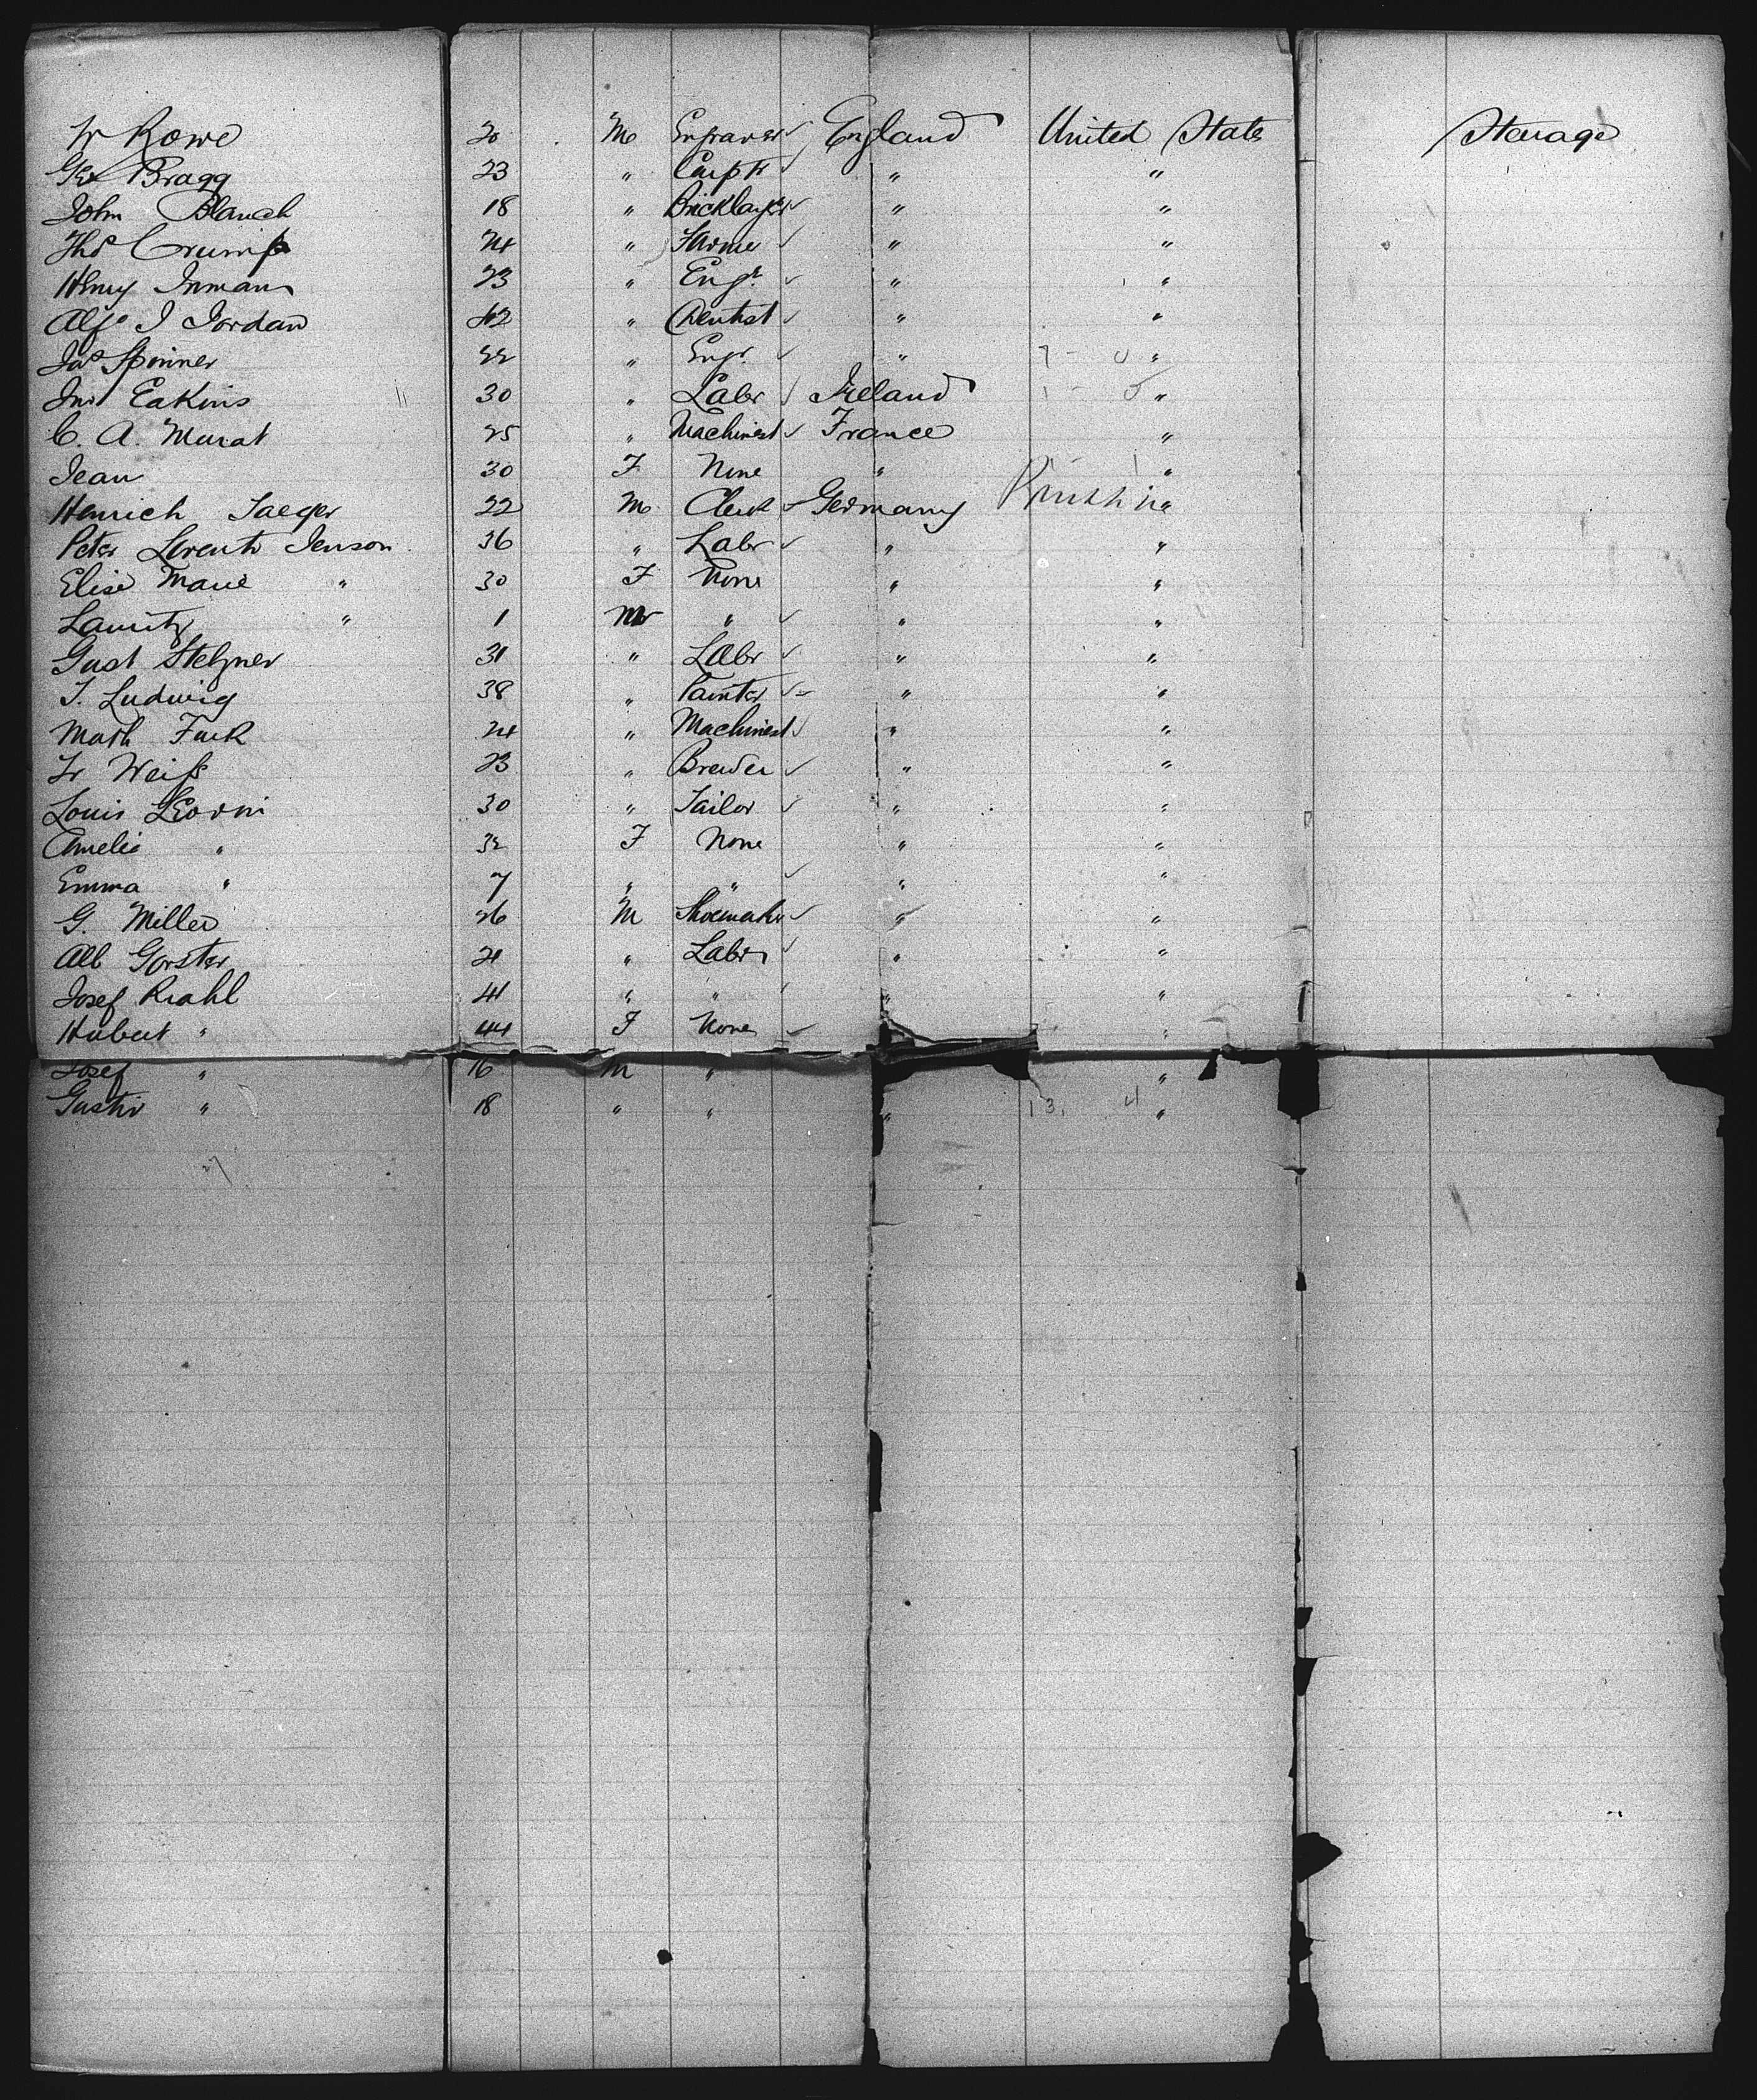 W Rowe 20 M Engraver England United States Steerage
Geo Bragg 23 " Carptr " "
John Blanch 18 " Bricklayer " "
Thos Crump 24 " Farmer " "
Henry Inman 23 " Engr " "
Alfd J Jordan 42 " Dentist " "
Jas Spinner 22 " Engr. " "
Jno Eakins 30 " Labr Ireland "
C. A. Murat 25 " Machinest France "
Jean 30 F None " "
Henrich Jaeger 22 M Clerk Germany Prussia "
Peter Lorentz Jenson 36 " Labr " "
Elise Marie " 30 F None " "
Lauritz " 1 M " " "
Gust Stelzner 31 " Labr " "
J. Ludwig 38 " Painter " "
Math Fuck 24 " Machinest " "
Fr Weiß 23 " Brewer " "
Louis 30 " Tailor " "
Amelie " 32 F None " "
Emma " 7 " " " "
G. Miller 26 M Shoemaker " "
Alb Gorster 21 " Labr " "
Josef 41 " " " "
Hubert " 44 F None "
Josef " 16 M " "
" 18 " " " 13. 4 "
27